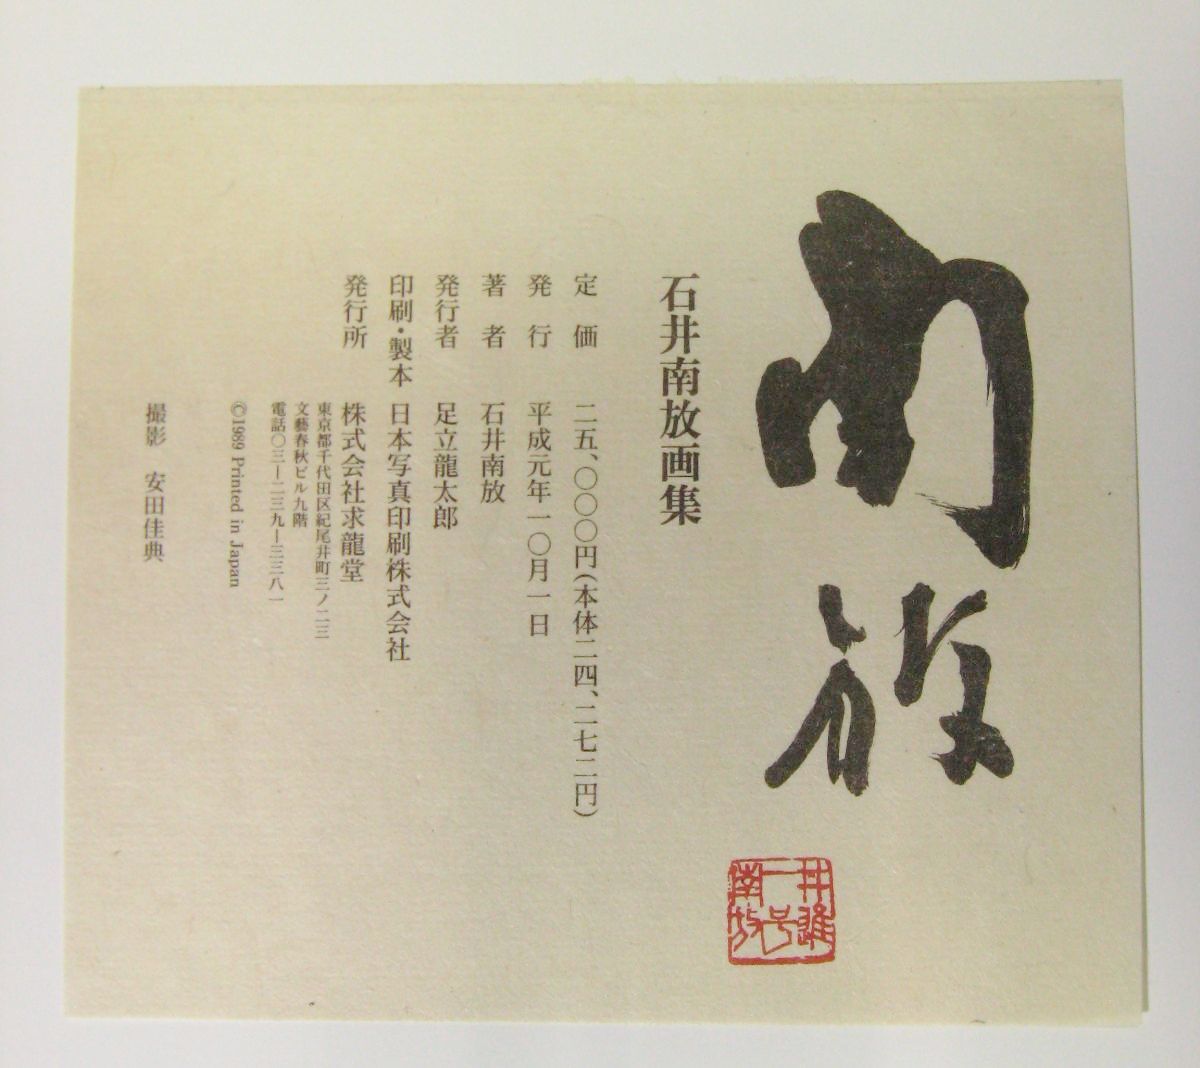 南放
井進
一号
南放
石井南放画集
定価 二五、〇〇〇円(本体二四、二七二円)
発行 平成元年一〇月一日
著者 石井南放
発行者 足立龍太郎
印刷・製本 日本写真印刷株式会社
発行所 株式会社求龍堂
東京都千代田区紀尾井町三ノ二三
文藝春秋ビル九階
電話〇三ー二三九ー三三八一
©1989 Printed in Japan
撮影 安田佳典